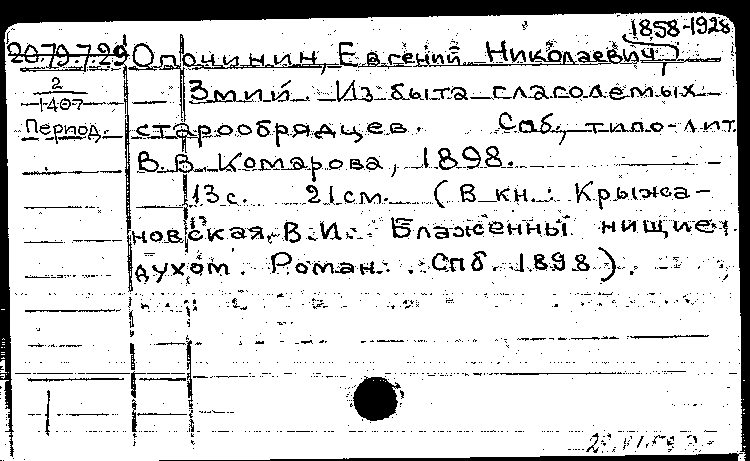 1858-1928
20.79.7.29 Опочинин, Евгений Николаевич,
2 Змий. Из быта глаголемых
1407
Период. старообрядцев. Спб., типо-лит.
В.В. Комарова, 1898.
13 с. 21 см. (В кн.: Крыжа-
новская, В.И. Блаженны нищие
духом. Роман. Спб. 1898).